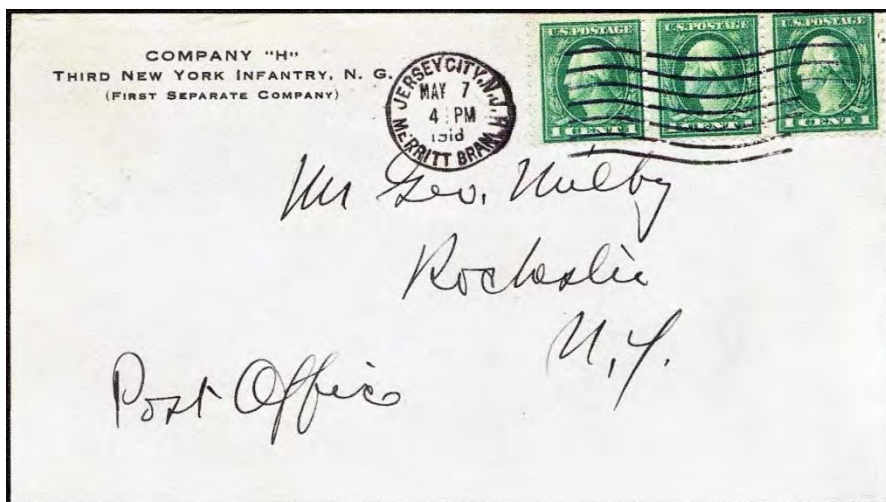 COMPANY "H"
THIRD NEW YORK INFANTRY, N. G.
(FIRST SEPARATE COMPANY)
JERSEY CITY, N.J.
MAY 7
4 PM
1918
MERRITT BRANCH
U.S. POSTAGE
1 CENT 1
U.S. POSTAGE
1 CENT 1
U.S. POSTAGE
1 CENT 1
Mr Geo. Milby
Rochester
N.Y.
Post Office